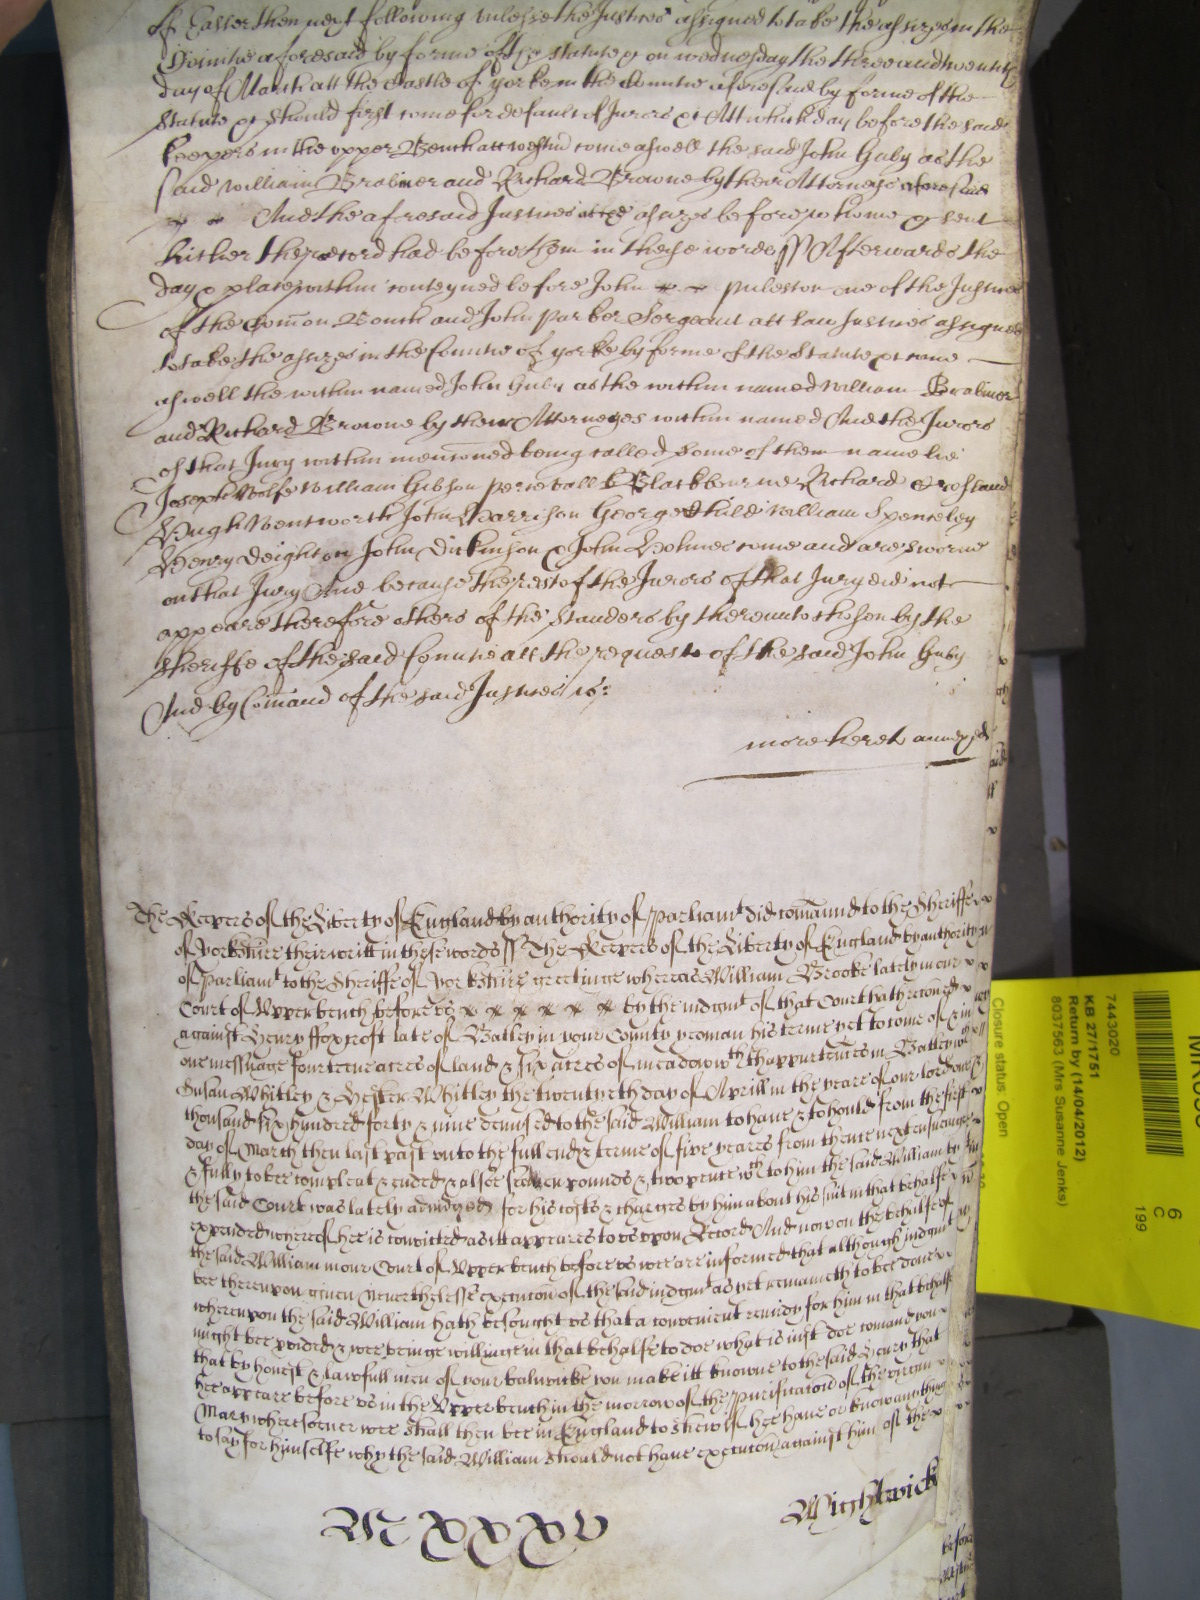 of Easter then next following unlesse the Justices assigned to take the assizes in the
Countie aforesaid by forme of the statute &c on wednesday the three and twentith
day of March att the Castle of yorke in the Countie aforesaid by forme of the
statute &c should first come for default of Jurors &c Att which day before the said
keepers in the upper Bench att westm̃ come aswell the said John Guby as the
said William Brabiner and Richard Browne by their Attorneys aforesaid
And the aforesaid Justices of the assizes before whome &c sent
hither their record had before them in these words ss Afterwards the
day & place within conteyned before John Puleston one of the Justices
of the Com̃on Bench and John Parker Sergeant att law Justices assigned
to take the assizes in the Countie of yorke by forme of the statute &c came
aswell the within named John Guby as the within named William Brabiner
and Richard Browne by their Attorneyes within named And the Jurors
of that Jury within menc̃oned being called some of them namelie
Joseph Wolfe William Gibson Percivall Blackbourne Richard Crosland
Hugh Wentworth John Harrison George Child William Spenceley
Henry Deighton John Dickinson & John Holmes come and are sworne
on that Jury And because the rest of the Jurors of that Jury did not
appeare therefore others of the standers by thereunto chosen by the
sheriffe of the said Countie att the request of the said John Guby
And by Com̃and of the said Justices is:
more hereto annexed
The Keepers of the Liberty of England by authority of Parliamt did com̃aund to the Sheriffe
of Yorkshire their writt in these words ss The Keepers of the Liberty of England by authority
of Parliamt to the Sheriffe of Yorkshire greetinge whereas William Brooke lately in our
Court of Upper bench before us by the iudgmt of that Court hath recoved
against Henry ffoxcroft late of Batley in your County yeoman his terme yet to come of & in
one messuage fourteene acres of land & six acres of meadow wth thappurtenñces in Batley wch
Susan Whitley & Hester Whitley the twentyeth day of Aprill in the yeare of our lord one
thousand six hundred forty & nine demised to the said William to have & to hould from the first
day of March then last past unto the full end & terme of five yeares from thence next ensueinge
& fully to bee compleat & ended & alsoe seaven pounds & two pence wch to him the said William by
the said Court was lately adiudged for his costs & charges by him about his suit in that behalfe
expended whereof hee is convicted as itt appeares to us upon Record And now on the behalfe of
the said William in our Court of Upper bench before us wee are informed that although iudgmt
bee thereupon given nevertheless execuc̃on of the said iudgmt as yet remaineth to bee done
whereupon the said William hath besought us that a convenient remidy for him in that behalfe
might bee pvided & wee beinge willinge in that behalfe to doe what is iust doe comand you
that by honest & lawfull men of your baliwicke you make itt knowne to the said Henry that
hee appeare before us in the Upper bench in the morrow of the Purificac̃on of the virgin
Mary wheresoever wee shall then bee in England to shew if hee have or know any thing
to say for himselfe why the said William should not have execuc̃on against him of the
Wightwick
M XXXV
7443020
KB 27/1751
Return by (14/04/2012)
8037563 (Mrs Susanne Jenks)
Closure status: Open
6
C
199